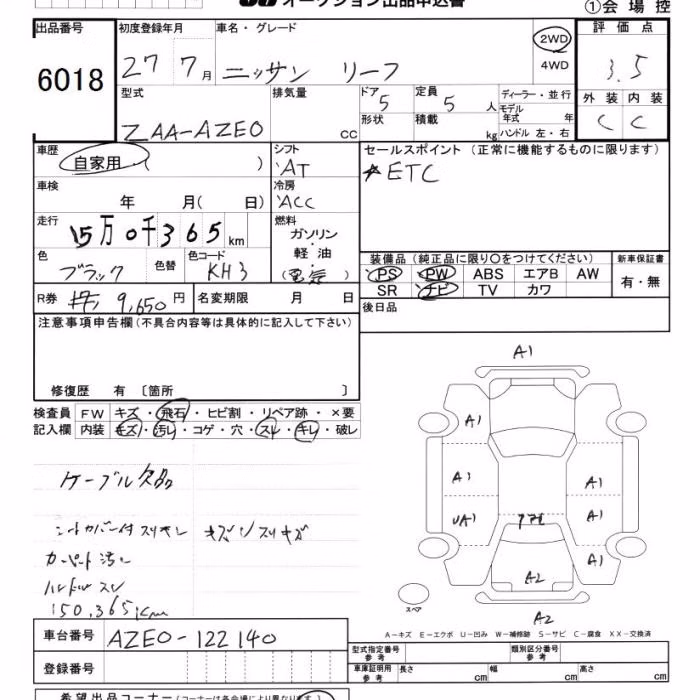 オークション出品申込書 ①会場控
出品番号 初度登録年月 車名・グレード 2WD 評価点
6018 27 7月 ニッサン リーフ 4WD 3.5
型式 排気量 ドア 定員 ディーラー・並行 外装 内装
5 5人 モデル年式 年
ZAA-AZE0 cc 形状 積載 kg ハンドル 左・右 C C
車歴 シフト セールスポイント(正常に機能するものに限ります)
自家用 ( ) AT ★ETC
車検 冷房
年 月( 日) ACC
走行 燃料
15万0千365km ガソリン・軽油・(電気)
色 色替 色コード 装備品(純正品に限り○をつけてください) 新車保証書
ブラック KH3 PS PW ABS エアB AW 有・無
SR ナビ TV カワ
R券 9,650円 名変期限 月 日 後日品
注意事項申告欄(不具合内容等は具体的に記入して下さい)
修復歴 有〔箇所 〕
検査員 FW キズ・飛石・ヒビ割・リペア跡・×要
記入欄 内装 キズ・汚レ・コゲ・穴・スレ・キレ・破レ
ケーブル欠品
シートカバー付スリキレ キズ/スリキズ
カーペット汚レ
ハンドルスレ
150,365km
A1
A1
A1 A1
UA1 A1
A1
A2
スペア
A2
A−キズ E−エクボ U−凹み W−補修跡 S−サビ C−腐食 XX−交換済
車台番号 AZE0-122140
登録番号
型式指定番号 参考 類別区分番号 参考
車庫証明用 参考 長さ cm 幅 cm 高さ cm
希望出品コーナー(コーナーは各会場により異なります)